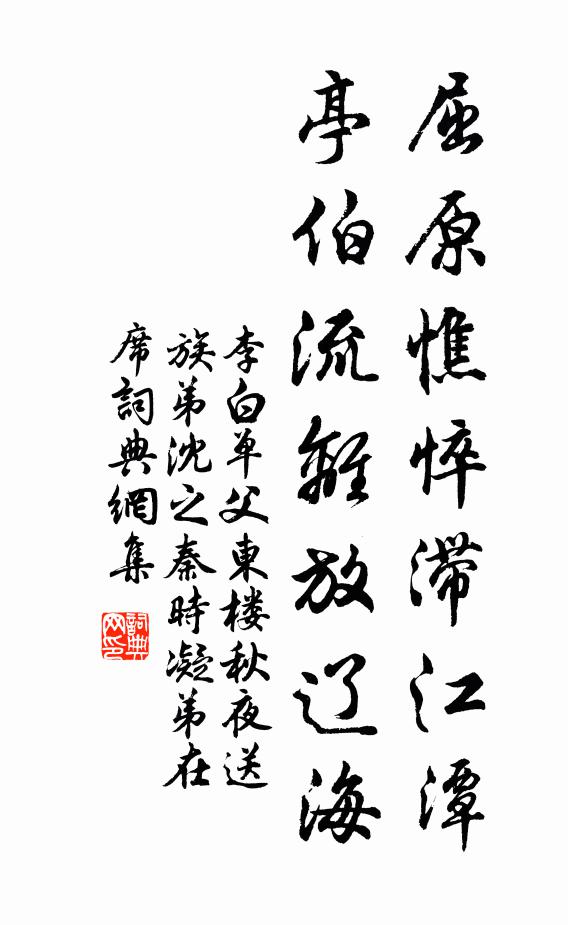 屈原憔悴滞江潭
亭伯流離放辽海
李白单父東楼秋夜送
族弟沈之秦時凝弟在
席詞典網集
詞典
网印